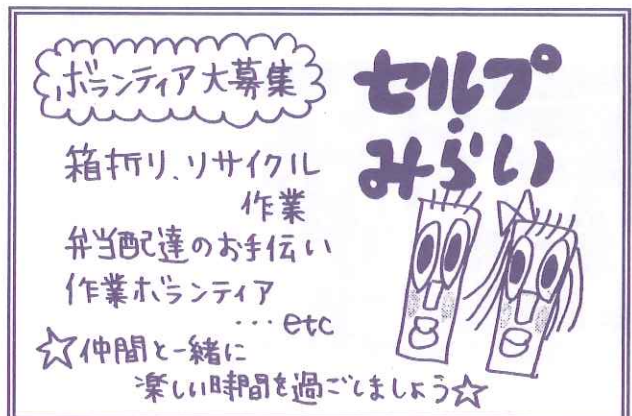 ボランティア大募集
セルプ
・
みらい
箱折り、リサイクル
作業
弁当配達のお手伝い
作業ボランティア
…etc
☆仲間と一緒に
楽しい時間を過ごしましょう☆